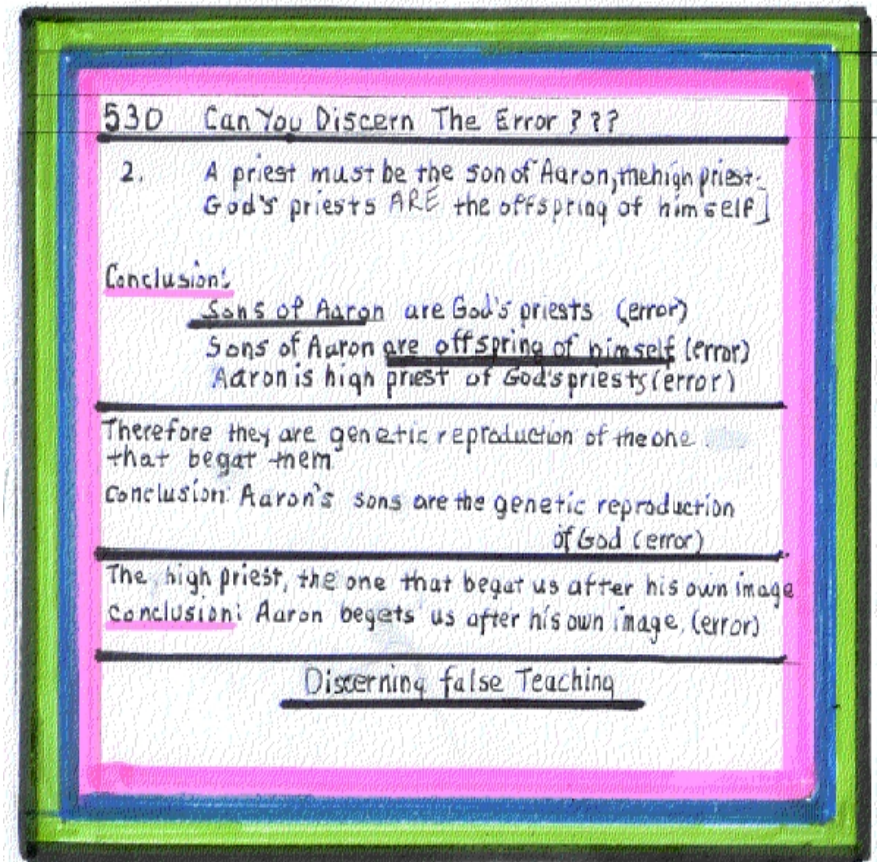 530 Can You Discern The Error ???
2. A priest must be the son of Aaron, the high priest.
God's priests ARE the offspring of himself]
Conclusion:
Sons of Aaron are God's priests (error)
Sons of Aaron are offspring of himself (error)
Aaron is high priest of God's priests (error)
Therefore they are genetic reproduction of the one
that begat them
Conclusion: Aaron's sons are the genetic reproduction
of God (error)
The high priest, the one that begat us after his own image
Conclusion: Aaron begets us after his own image. (error)
Discerning false Teaching